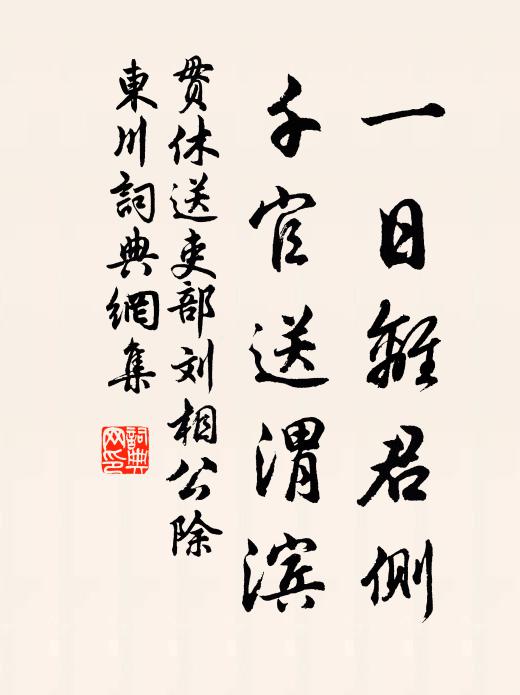 一日離君側
千官送渭滨
贯休送吏部刘相公除
東川詞典網集
詞典
网印